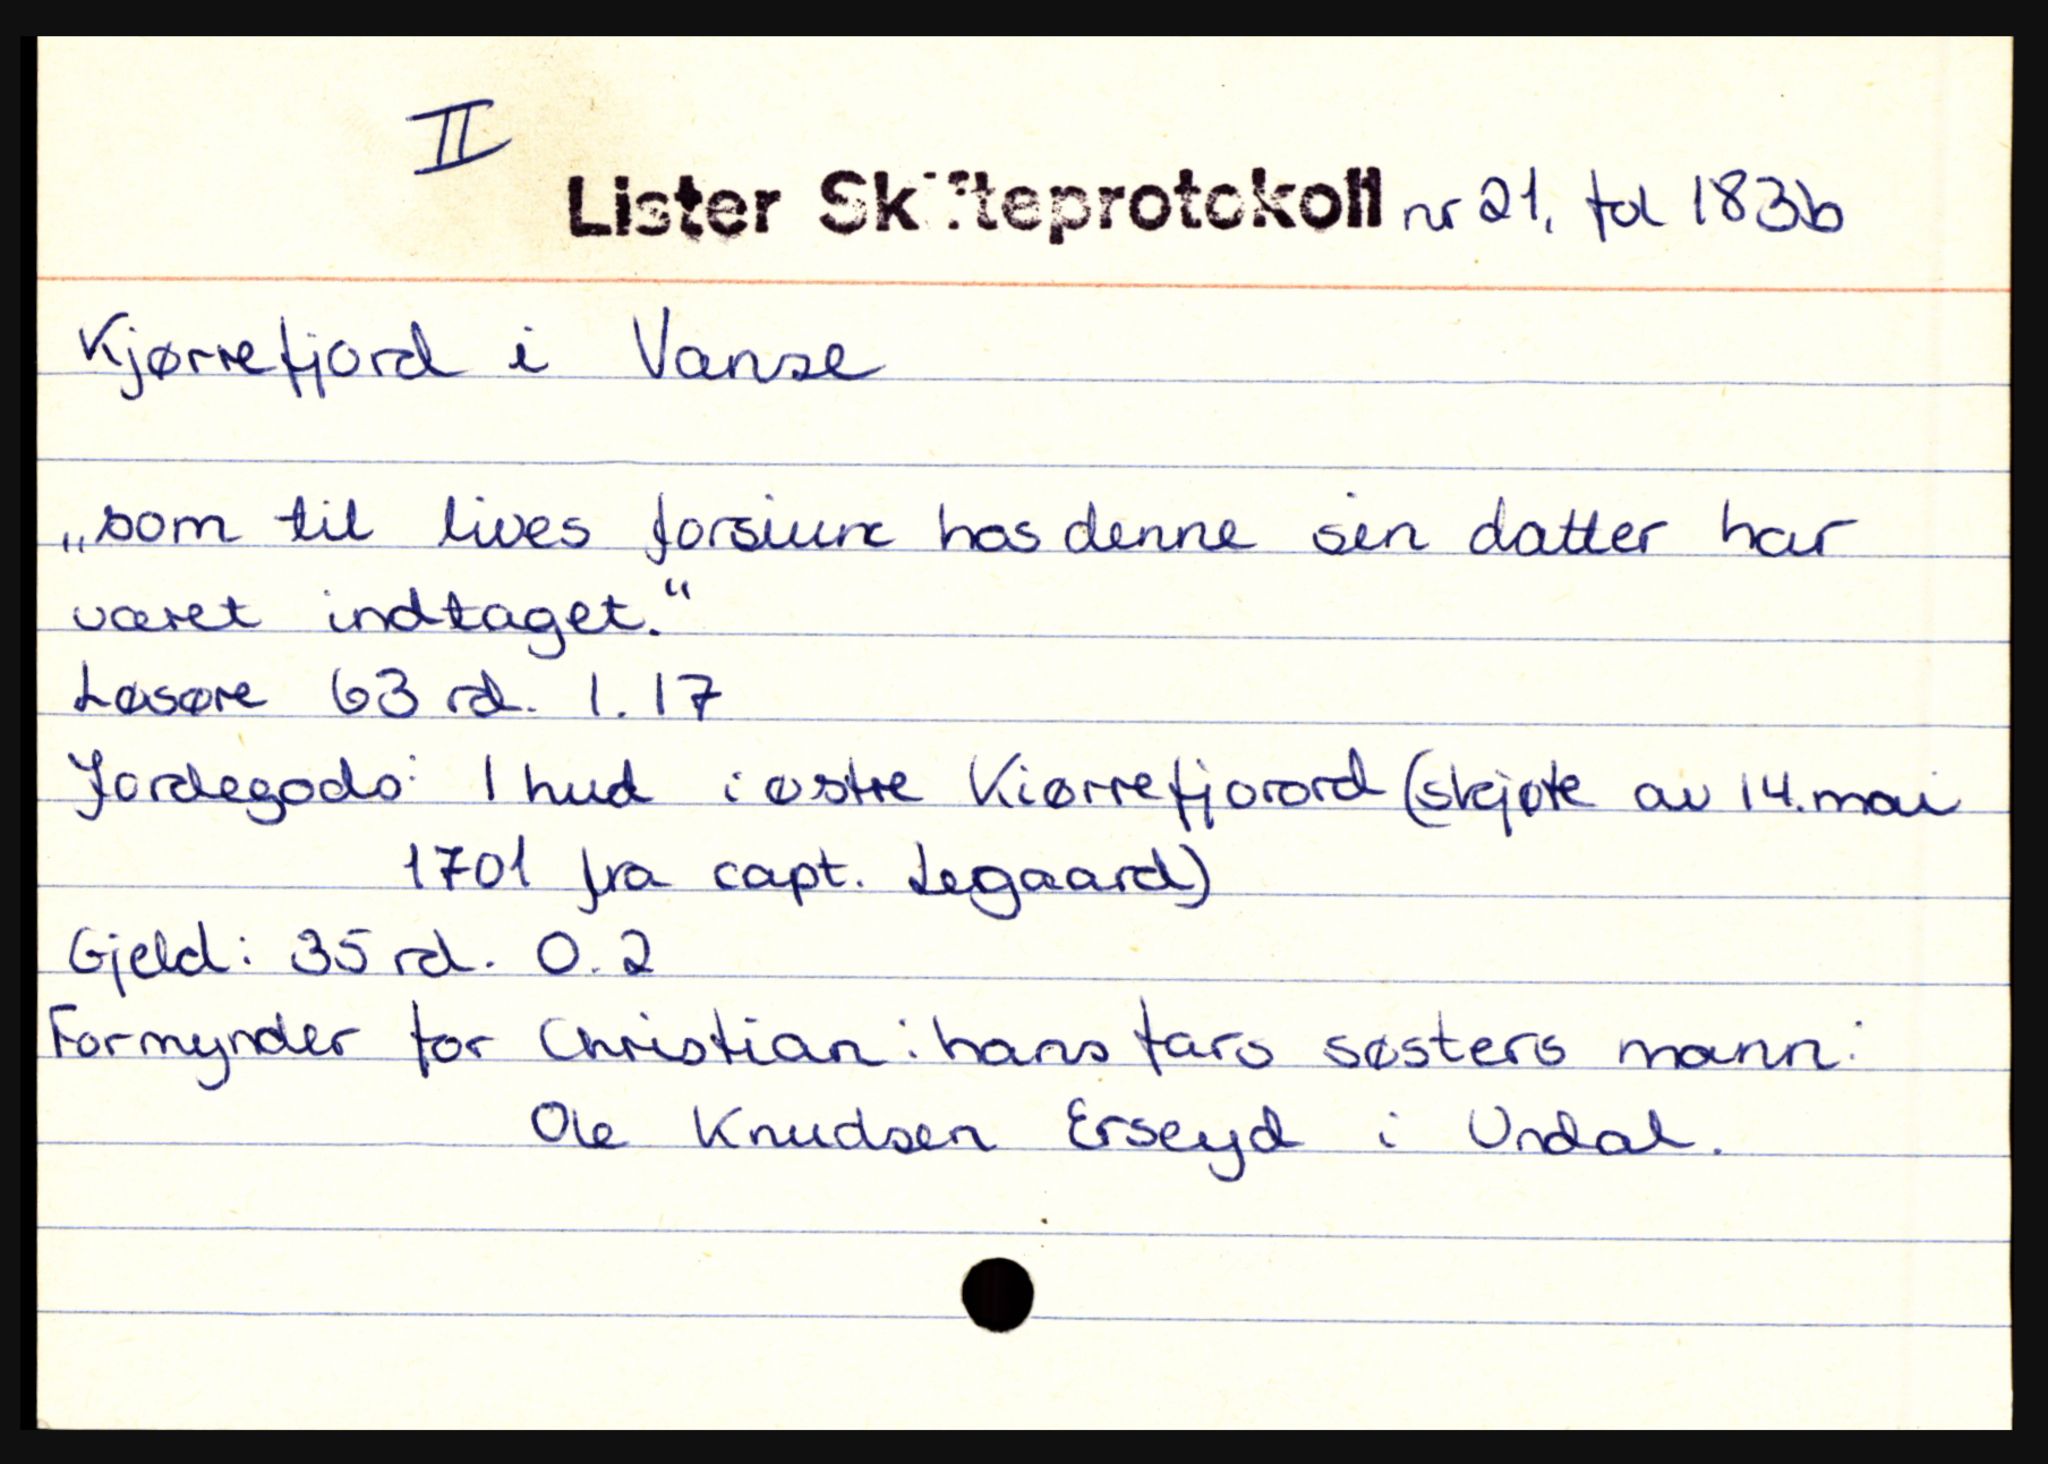 II
Lister Skifteprotokoll nr 21, fol 183b
Kjørrefjord i Vanse
„som til lives forsiun hos denne sin datter har
været indtaget.“
Løsøre 63 rd. 1.17
Jordegods: 1 hud i østre Kiørrefjorord (skjøte av 14. mai
1701 fra capt. Legaard)
Gjeld: 35 rd. 0.2
Formynder for Christian: hans fars søsters mann:
Ole Knudsen Erseyd i Undal.